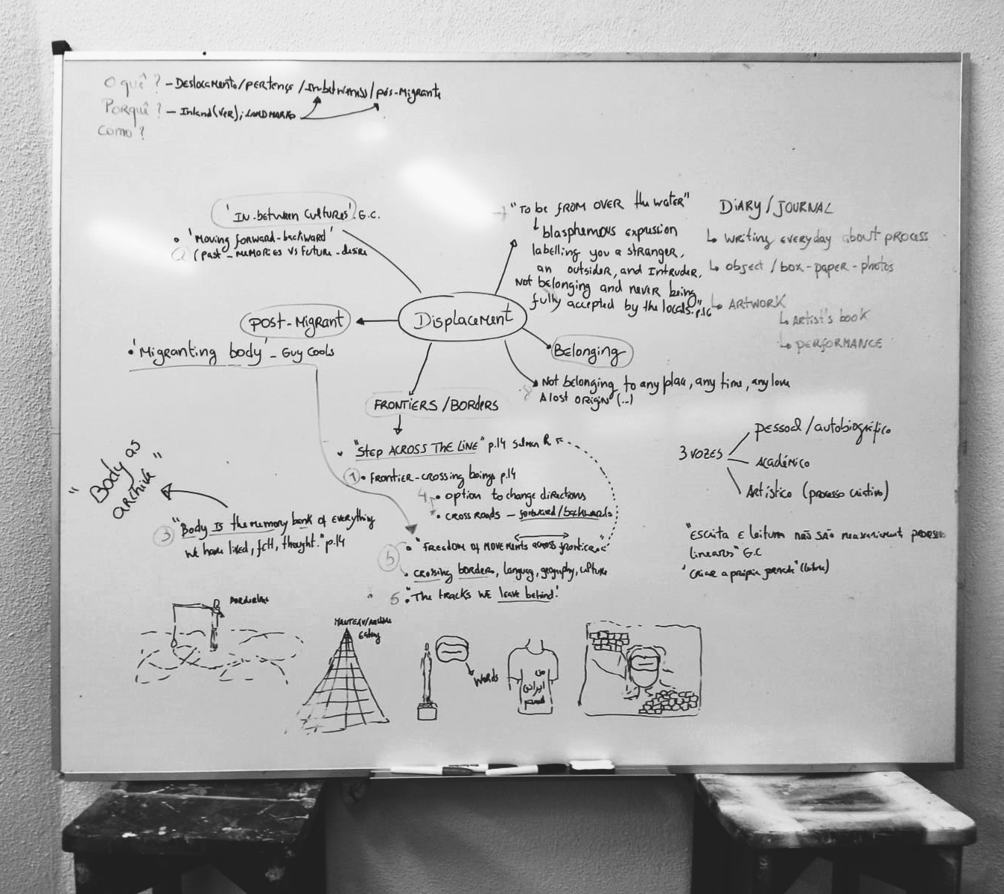 O quê? - Deslocamento/pertença/In-betweness/pós-Migrante
Porquê? - Inland(ver); LANDMARKS
Como?
'In-between Cultures' G.C.
• 'Moving forward-backward'
(past - memories vs future - desire
Post-Migrant
• 'Migranting body' - Guy Cools
Displacement
"To be from over the water"
blasphemous expression
labelling you a stranger,
an outsider, and Intruder,
Not belonging and never being
fully accepted by the locals." p.16
Belonging
Not belonging to any place, any time, any love
A lost origin (...)
DIARY/JOURNAL
↳ Writing everyday about process
↳ object/box-paper-photos
↳ ARTWORK
↳ Artist's book
↳ PERFORMANCE
FRONTIERS/BORDERS
• "Step ACROSS THE LINE" p.14 Salman R.
1 • Frontier-crossing beings p.14
4 • option to change directions
• cross roads - forward/backwards
• "Freedom of movements across frontiers"
• crossing borders, language, geography, culture
5 • "The tracks we leave behind."
"Body as
archive"
3 "Body is the memory bank of everything
we have lived, felt, thought." p.14
3 vozes
pessoal/autobiográfico
Académico
Artístico (processo criativo)
"Escrita e leitura não são necessariamente processos
lineares" G.C
Words
من
ایرانی
هستم